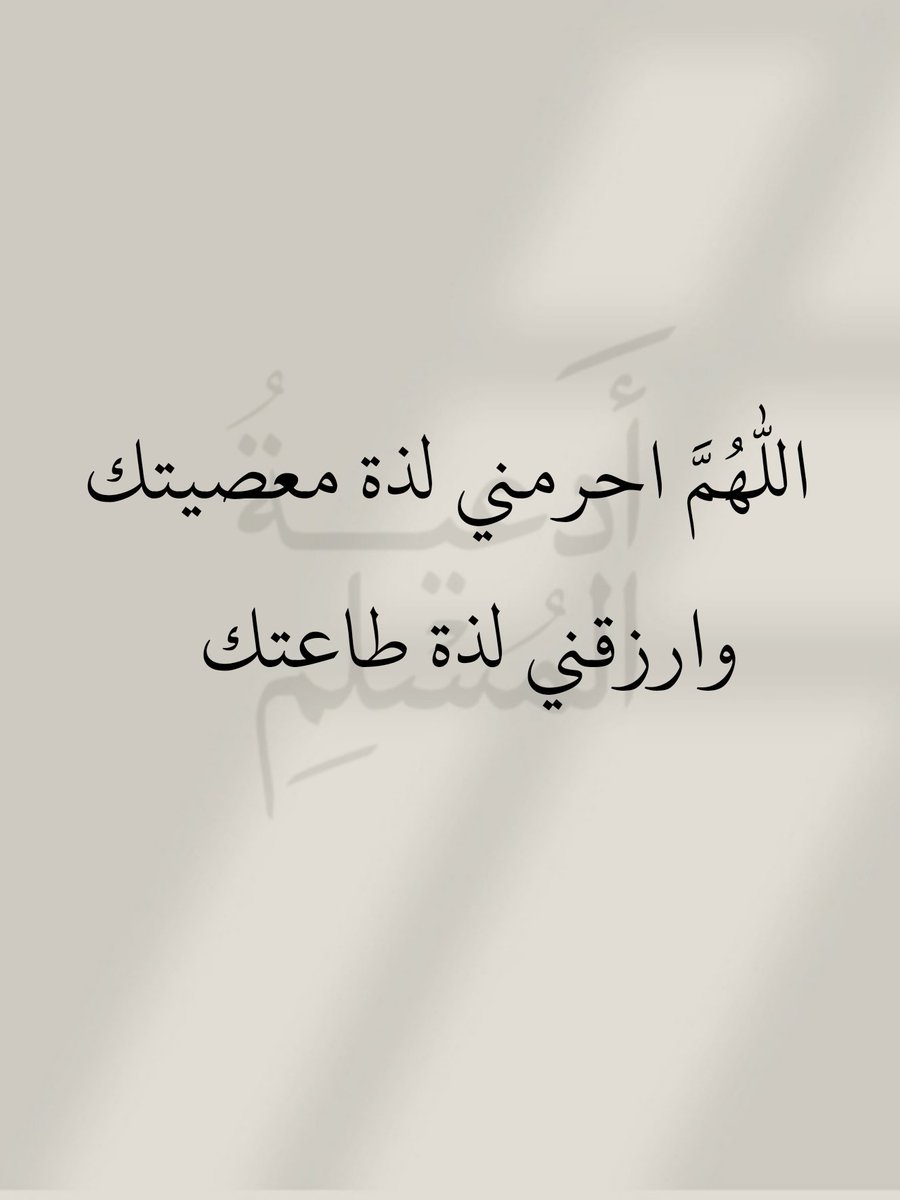 اللّٰهُمَّ احرمني لذة معصيتك
وارزقني لذة طاعتك
أَدعيةُ
المُسْلِمِ